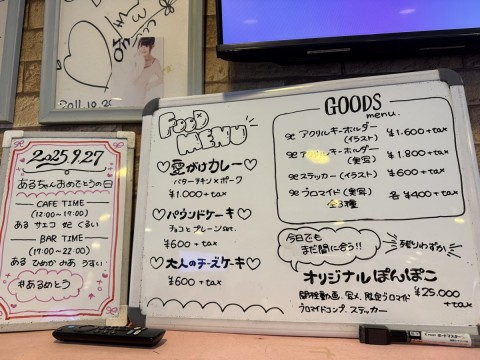 2011.10.20
2025.9.27
あるちゃんおめでとうの日
CAFE TIME
(12:00~17:00)
ある サエコ せと くるい
BAR TIME
(17:00~22:00)
ある ひめか みあ うすい
#あるめとう
FOOD
MENU
♡愛がけカレー♡
バターチキン×ポーク
¥1.000+tax
♡パウンドケーキ♡
チョコとプレーンset.
¥600+tax
♡大人のチーズケーキ♡
¥600+tax
GOODS
menu.
アクリルキーホルダー ¥1.600+tax
(イラスト)
アクリルキーホルダー ¥1.800+tax
(実写)
ステッカー(イラスト) ¥600+tax
ブロマイド(実写) 各¥400+tax
全3種
今日でも
まだ間に合う!!
残りわずか
オリジナルぽんぽこ
開栓動画、写メ、限定ブロマイド ¥25.000
+tax
ブロマイドコンプ、ステッカー
ボードマスター